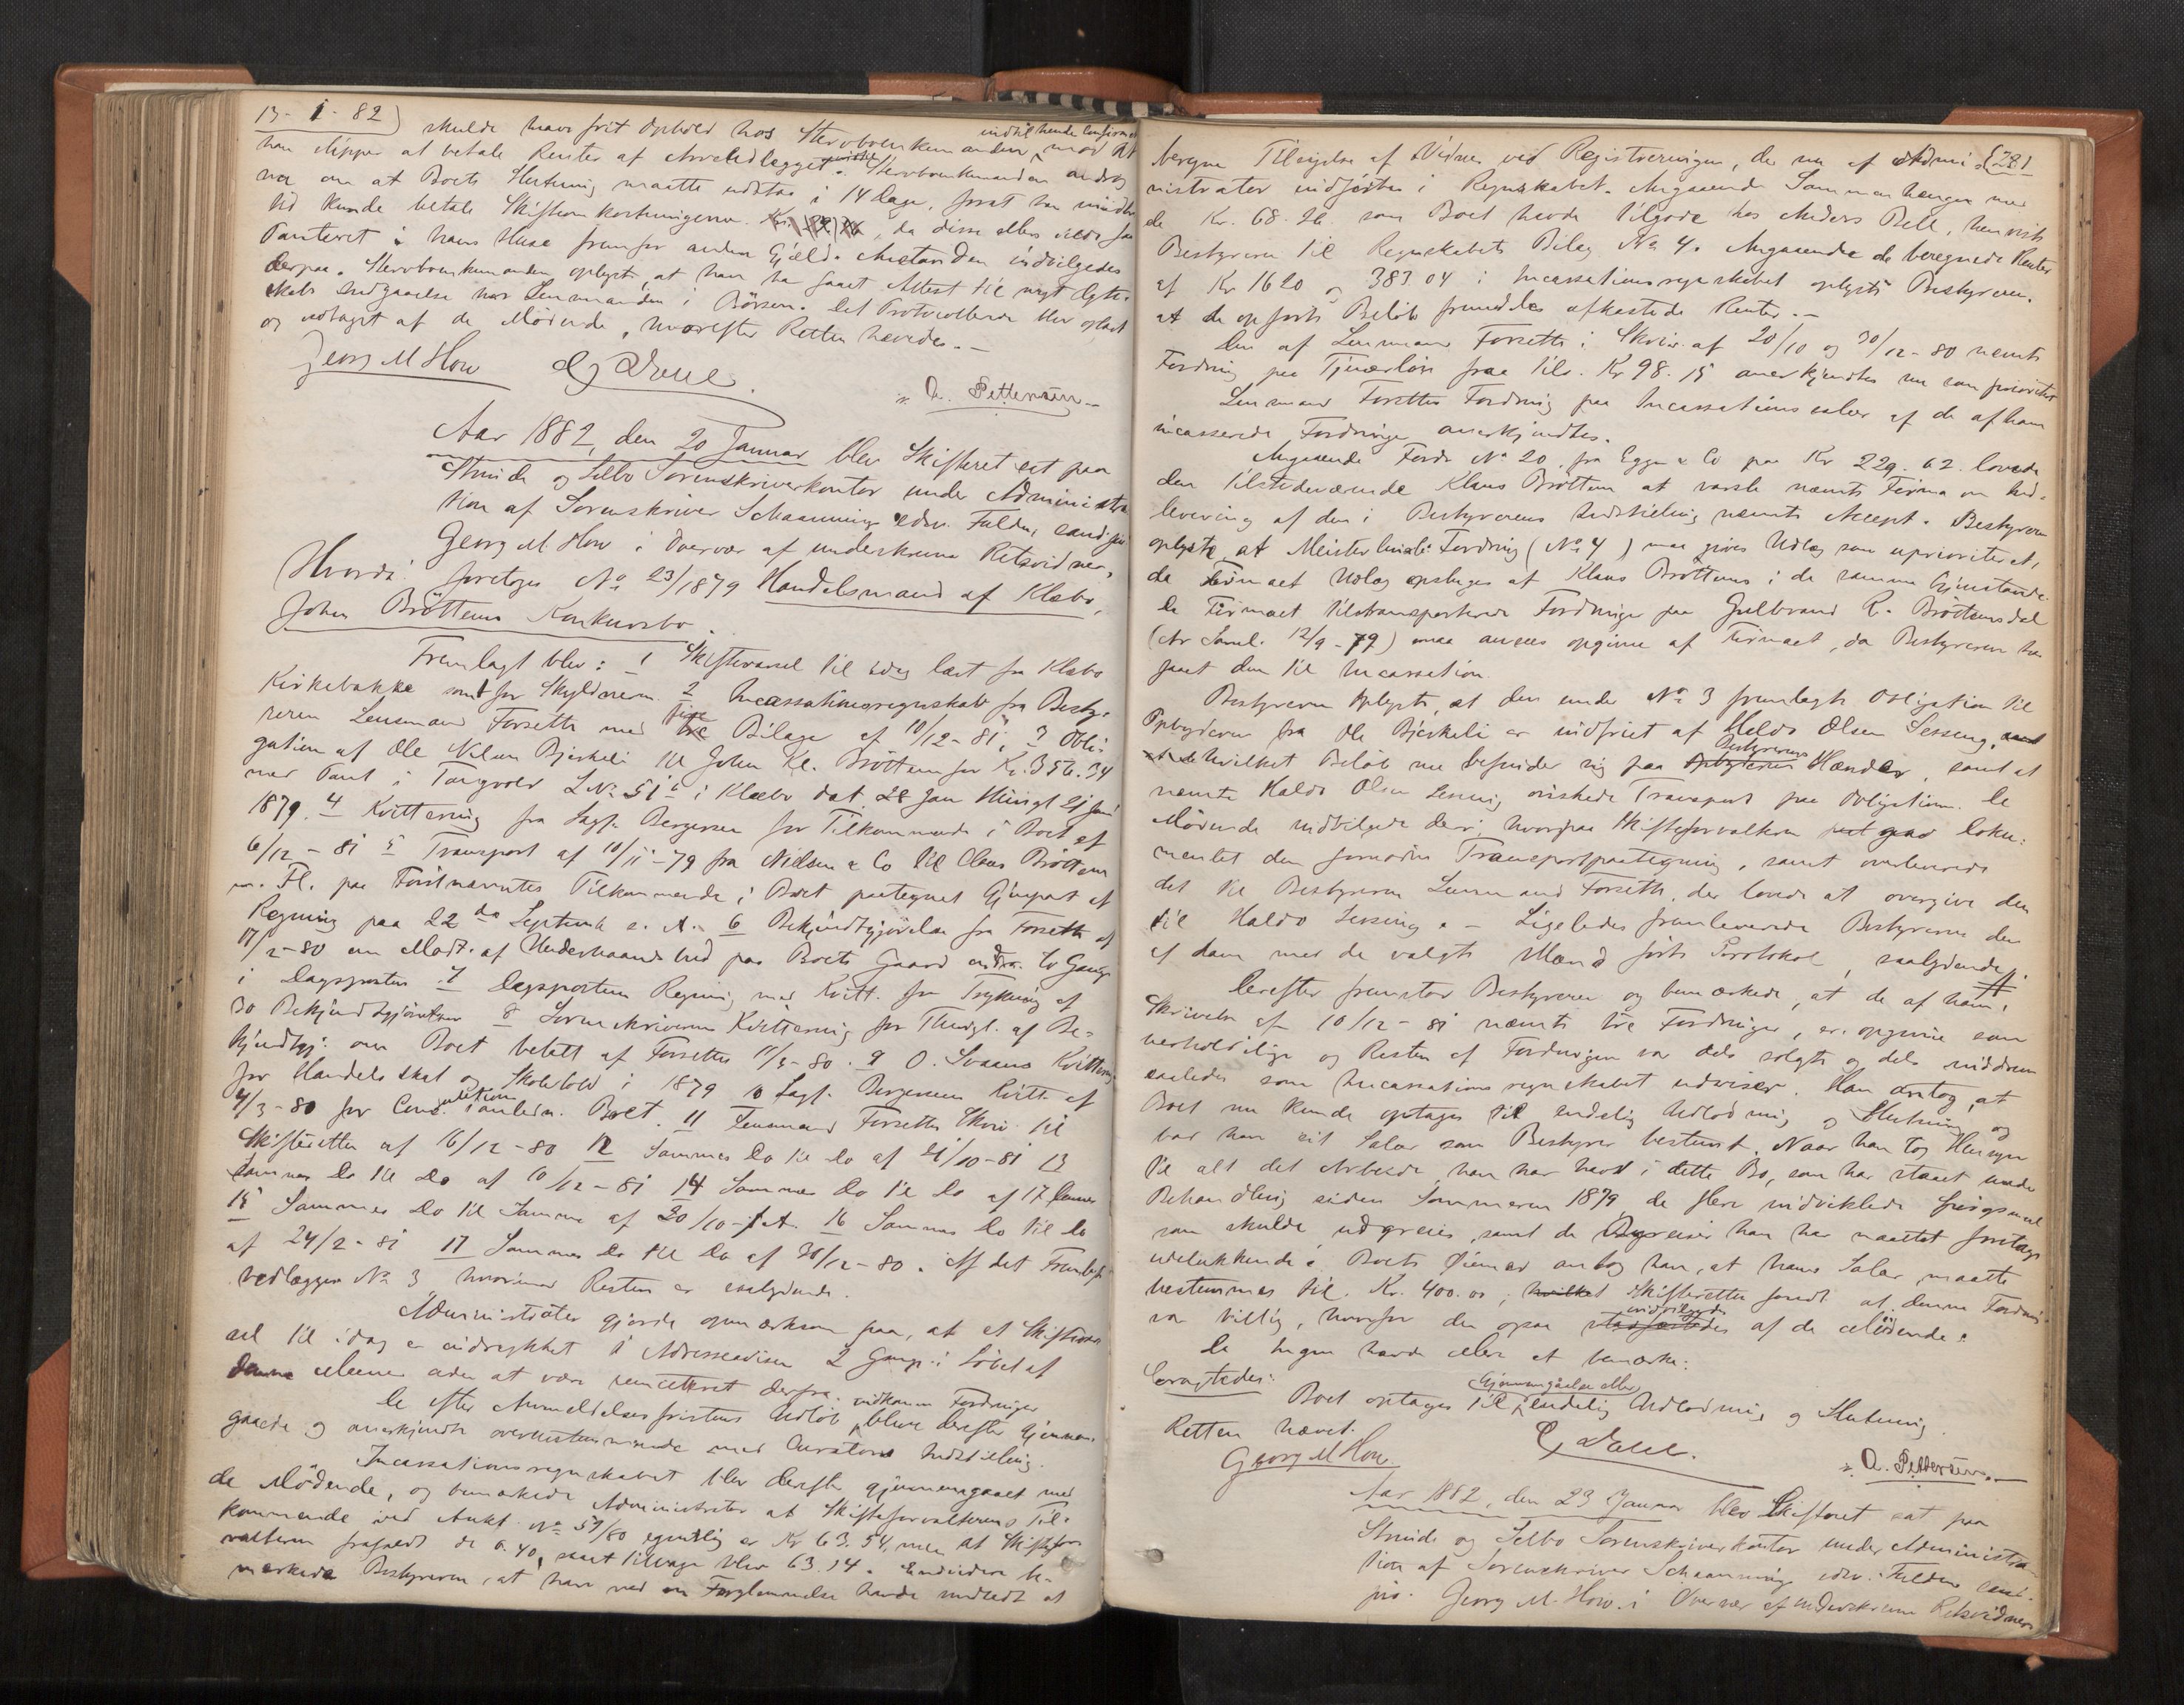 13-1-82) skulde have frit Ophold hos Stervboenkemanden, indtil hendes Confirma mod at
han slipper at betale Renter af Arvelodlægget. Stervboenkemanden androg
nu om at Boets Slutning maatte udstaa i 14 Dage, forat han imidler
tid kunde betale Skifteomkostningerne, da disse ellers vilde faa
Panteret i hans Huse fremfor anden Gjæld. Anstanden indvilgedes
derpaa. Stervboenkemanden oplyste, at han har faaet Attest til nyt Ægte-
skabs Indgaaelse hos Lensmanden i Börsen. Det Protocollerede blev oplæst
og vedtaget af de Mödende, hvorefter Retten hævedes.-
Georg M How
A. Pettersen
Aar 1882, den 20 Januar blev Skifteret sat paa
Strinde og Selbo Sorenskriverkontor under Administra
tion af Sorenskriver Schaanning edsv. Fuldm, cand jur
Georg M. How i Overvær af underskrevne Retsvidner,
Hvorda foretoges No 23/1879 Handelsmand af Klæbo,
John Bröttems Konkursbo.
Fremlagt blev: 1 Skiftevarsel til idag læst fra Klæbo
Kirkebakke samt for Skyldneren. 2 Incassationsregnskab fra Besty-
reren Lensmand Forseth med fire Bilage af 10/12-81, 3 Obli-
gation af Ole Nilsen Bjerkeli til John Kl. Bröttem for Kr. 356.34
med Pant i Tangvold L No 51 i Klæbo dat. 28 Jan thingl 21 Juni
1879. 4 Kvittering fra Sagf. Bergersen for Tilkommende i Boet af
6/12-81 5 Transport af 10/11-79 fra Nielsen & Co til Claus Bröttem
m. Fl. paa Førstnævntes Tilkommende i Boet paategnet Gjenpart af
Regning paa 22 da September s. A. 6 Bekjendtgjörelse fra Forseth af
17/2-80 om Modt. af Underhaandsbud paa Boets Gaard to Gange
i Dagsposten 7 Dagspostens Regning med Kvitt. for Trykning af
30 Bekjendtgjörelser 8 Sorenskriverens Kvittering for Thingl. af Be-
kjendtgj. om Boet betalt af Forseth 11/3-80. 9 O. Svaans Kvittering
for Handelsskat og Skolebold i 1879 10 Sagf. Bergersens Kvitt. af
4/3-80 for Consultation anledn. Boet. 11 Lensmand Forseths Skriv. til
Skifteretten af 16/12-80 12 Sammes Do til Do af 21/10-81 13
Sammes Do til Do af 10/12-81 14 Sammes Do til Do af 17 dennes
15 Sammes Do til Samme af 20/10- f. A. 16 Sammes Do til Do
af 24/2-81 17 Sammes Do til Do af 30/12-80. Af det Fremlagte
vedlægges No 3 hvorimod Resten er saalydende.
Administrator gjorde opmærksom paa, at et Skiftevar
sel til idag er indrykket i Adresseavisen 2 Gange i Löbet af
denne Maaned uden at være remitteret derfra.
De efter Anmeldelsesfristens Udlöb indkomne Fordringer bleve derefter gjennem-
gaaede og anerkjendte overensstemmende med Curators Indstilling.
Incassationsregnskabet blev derefter gjennemgaaet med
de Mödende, og bemærkede Administrator at Skifteforvalterens Til-
kommende ved Aukt. No 59/80 egentlig er Kr 63.54, men at Skiftefor
valteren frafaldt de 0.40, saat tilbage blev 63.14. Endvidere be-
mærkede Bestyreren, at han ved en Forglemmelse havde undladt at
281
beregne Tilsigelse af Vidner ved Registreringen, der nu af Admi-
nistrator indförtes i Regnskabet. Angaaende Sammenhængen med
de Kr. 68.26 som Boet havde tilgode hos Anders Bell, henviste
Bestyreren til Regnskabets Bilag No 4. Angaaende de beregnede Renter
af Kr 1620 og 383.04 i Incassationsregnskabet oplyste Bestyreren.
at de opförte Belöb fremdeles afkastede Renter.-
Den af Lensmand Forseth i Skriv. af 20/10 og 30/12-80 nævnte
Fordring paa Tjenerlön fraa tils. Kr 98.15 anerkjendtes nu som prioritet
Lensmand Forseths Fordring paa Incassationssalær af de af ham
incasserede Fordringer anerkjendtes.
Angaaende Fordr No 20, fra Eggen & Co paa Kr 229.62 lovede
den tilstedeværende Klaus Bröttem at varsle nævnte Firma om Ind-
levering af den i Bestyrerens Indstilling nævnte Accept. Bestyreren
oplyste, at Meisterlins Fordring (No 4) maa gives Udlæg som uprioriteret,
da Firmaet Udlæg opsluges af Klaus Bröttems i de samme Gjenstande.
De Firmaet tiltransporterede Fordringer paa Gulbrand R. Bröttemsdal
(Ar Saml. 12/9-79) maa ansees opgivne af Firmaet, da Bestyreren har
faaet dem til Incassation.
Bestyreren oplyste, at den under No 3 fremlagte Obligation til
Opbyderen fra Ole Bjerkeli er indfriet af Haldo Olsen Sesseng,
hvilket Belöb nu befinder sig paa Bestyrerens Hænder, samt at
nævnte Haldo Olsen Sesseng önskede Transport paa Obligationen. De
Mödende indvilgede deri, hvorpaa Skifteforvalteren gav Doku-
mentet den fornödne Transportpaategning, samt overleverede
det til Bestyreren Lensmand Forseth, der lovede at overgive den
til Haldo Sesseng. - Ligeledes fremleverede Bestyreren den
af ham med de valgte Mænd förte Protokol, saalydende #.
Derefter fremstod Bestyreren og bemærkede, at de af ham i
Skrivelse af 10/12-81 nævnte tre Fordringer, er opgivne som
uerholdelige og Resten af Fordringerne var dels solgte og dels inddrevne
saaledes som Incassationsregnskabet udviser. Han antog, at
Boet nu kunde optages til endelig Udlodning og Slutning og
bad han sit Salær som Bestyrer bestemt. Naar han tog Hensyn
til alt det Arbeide, han har havt i dette Bo, som har staaet under
Behandling siden Sommeren 1879, de flere indviklede Spörgsmaal
som skulde udgreies, samt de Byreiser han har maattet foretage
udelukkende i Boets Öiemed antog han, at hans Salær maatte
bestemmes til Kr. 400.00; Skifteretten fandt at denne Fordring
var billig, hvorfor den ogsaa indvilgedes af de Mödende.
Da Ingen havde Mere at bemærke.
Eragtedes:
Boet optages til Gjennemgåelse eller endelig Udlodning og Slutning
Retten hævet.
Georg M How.
A. Pettersen
Aar 1882, den 23 Januar blev Skifteret sat paa
Strinde og Selbo Sorenskriverkontor under Administra-
tion af Sorenskriver Schaanning edsv. Fuldm cand.
jur. Georg M. How i Overvær af underskrevne Retsvidner